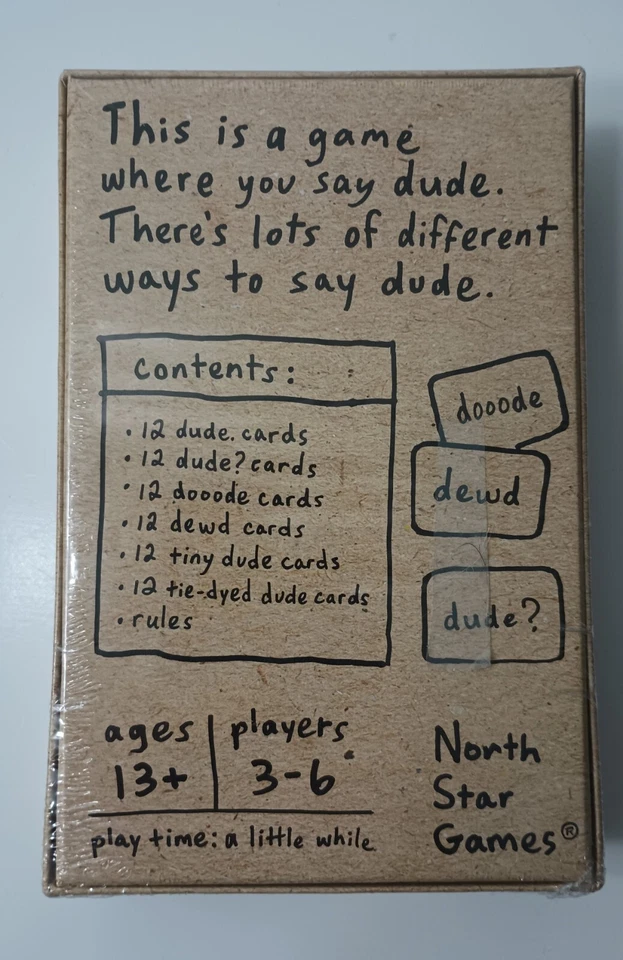 This is a game
where you say dude.
There's lots of different
ways to say dude.
contents:
• 12 dude. cards
• 12 dude? cards
• 12 dooode cards
• 12 dewd cards
• 12 tiny dude cards
• 12 tie-dyed dude cards
• rules
dooode
dewd
dude?
ages
13+
players
3-6
play time: a little while
North
Star
Games®